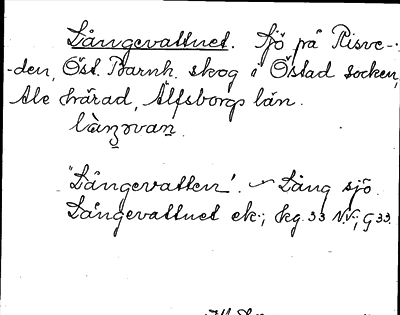 Långevattnet. Sjö på Risve-
-den, Öst. Barnh. skog i Östad socken,
Ale härad, Älfsborgs län.
"Långevatten". Lång sjö.
Långevattnet ek.; Skg. 33 N.V.; G 33.